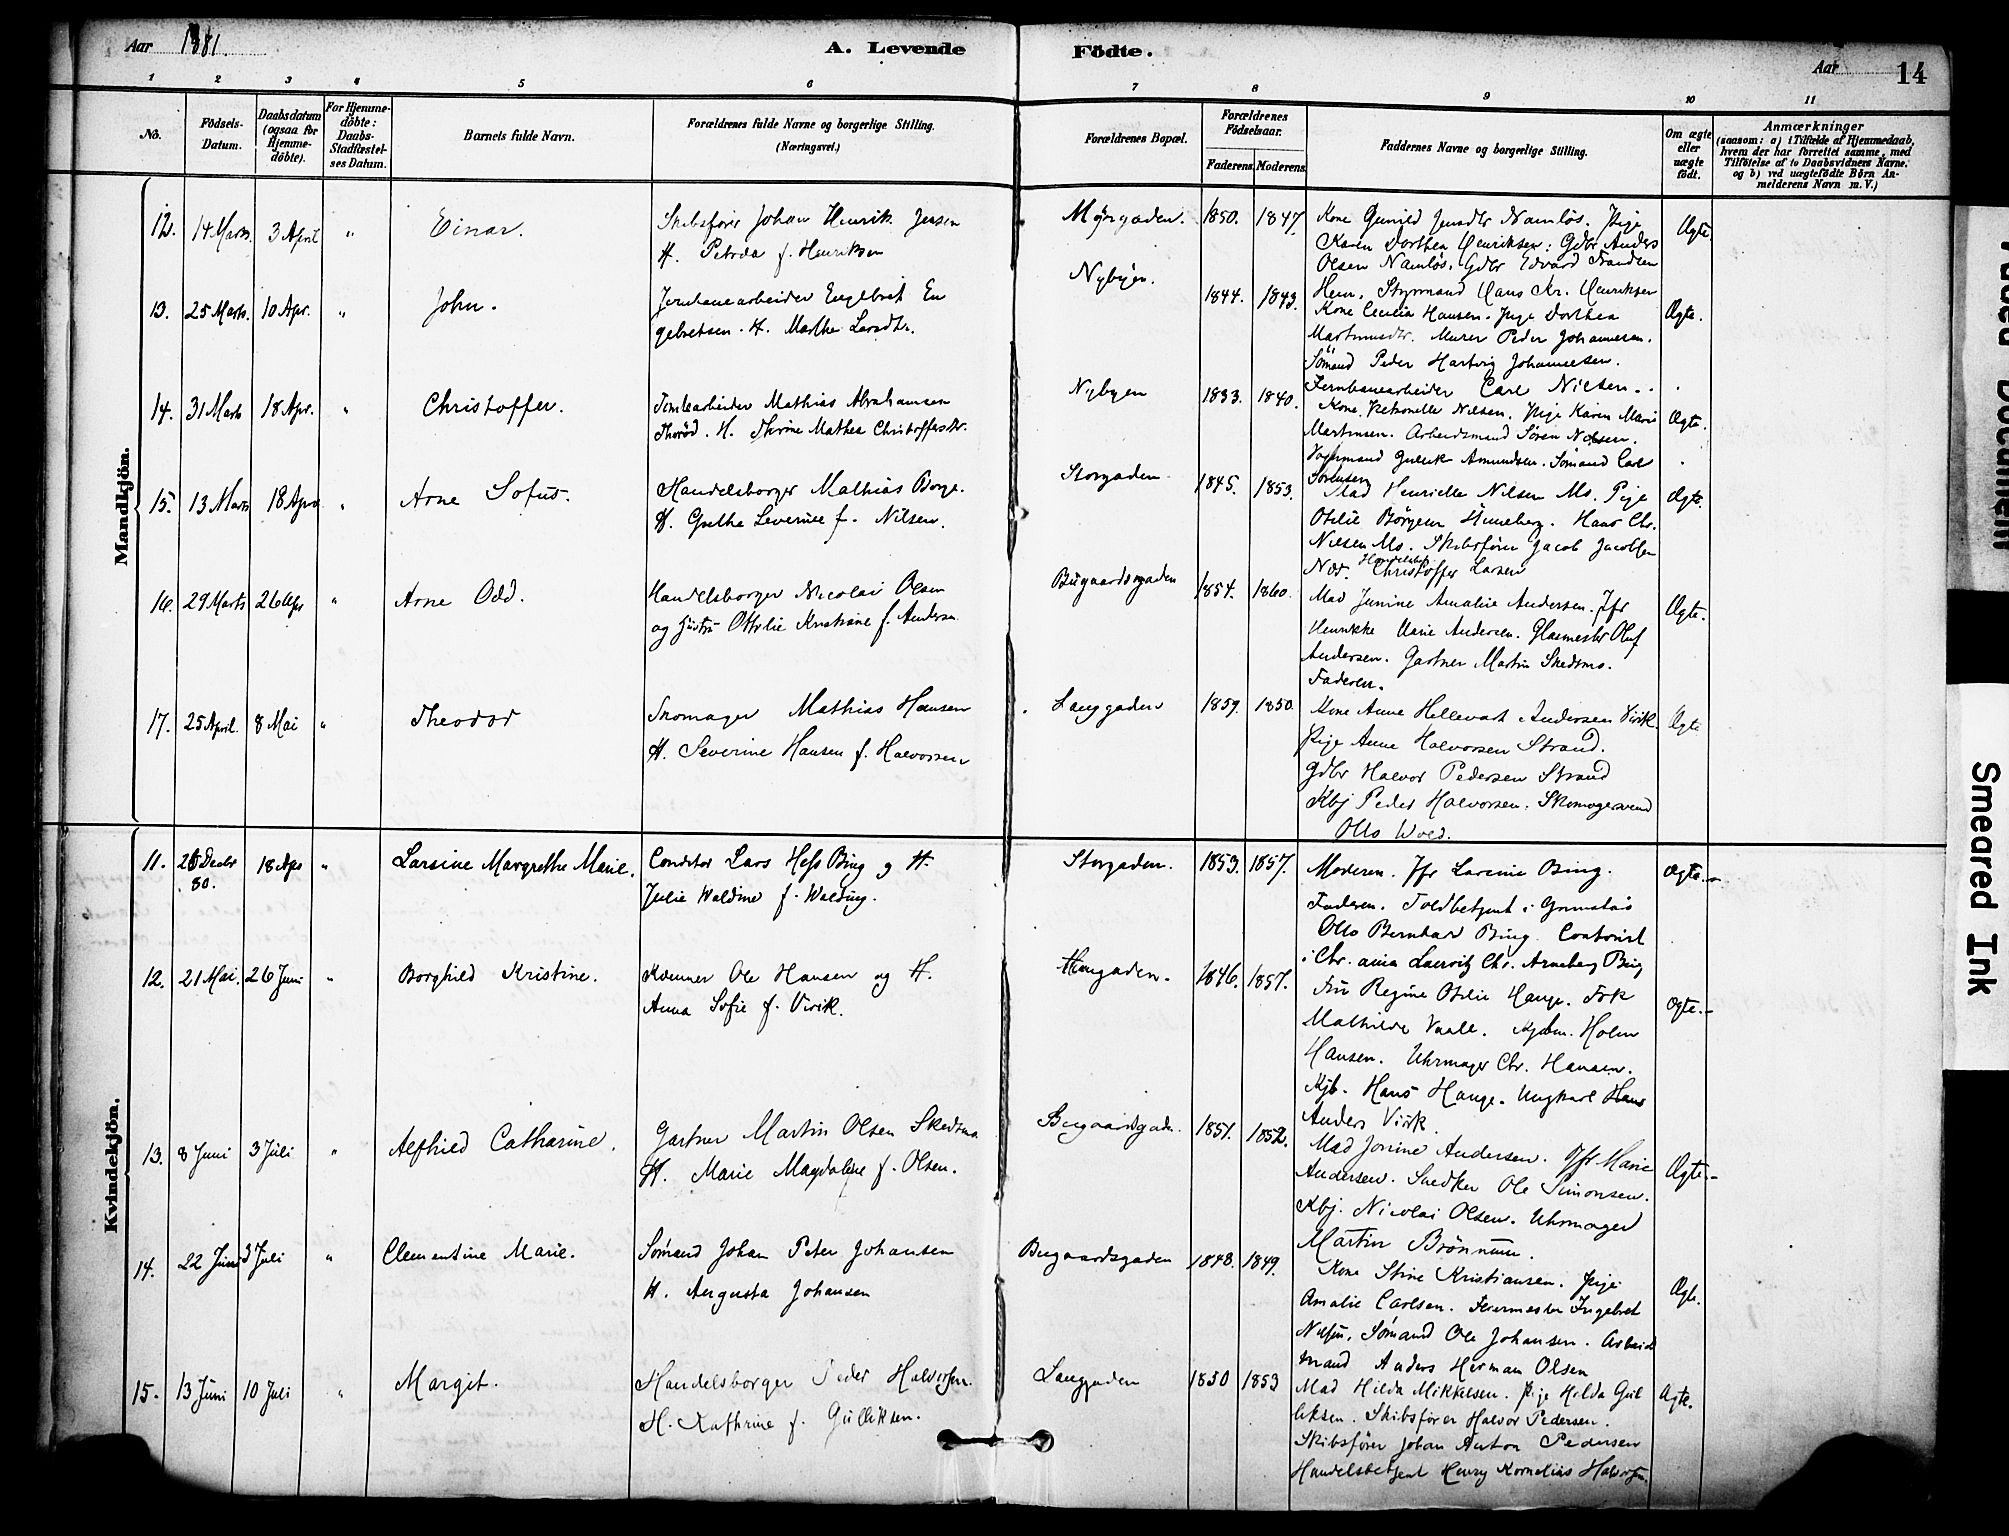 Aar 1881.
A. Levende Födte.
Aar 14
1 2 3 4 5 6 7 8 9 10 11
No.
Födsels-Datum.
Daabsdatum (ogsaa for Hjemme-döbte).
For Hjemme-döbte: Daabs-Stadfæstel-ses Datum.
Barnets fulde Navn.
Forældrenes fulde Navne og borgerlige Stilling.
(Næringsvei.)
Forældrenes Bopæl.
Forældrenes Födselsaar.
Faderens. Moderens.
Faddernes Navne og borgerlige Stilling.
Om ægte eller uægte födt.
Anmærkninger
(saasom: a) i Tilfælde af Hjemmedaab,
hvem der har forrettet samme, med
Tilföielse af to Daabsvidners Navne.
og b) ved uægtefödte Börn An-
melderens Navn m. V.)
Mandkjön.
12. 14 Marts 3 April " Einar. Skibsfører Johan Henrik Jensen
H. Petrea f. Henriksen
Møjegaden. 1850. 1847.
Kone Gunild Jensdtr Namløs. Pige
Karen Dorthea Henriksen. Gdbr Anders
Olsen Namløs. Gdbr Edvard Frandsen
Hem. Styrmand Hans Kr. Henriksen
Ægte.
13. 25 Marts. 10 Apr. " John. Jernbanearbeider Engebret En
gebretsen. H. Marthe Larsdtr.
Nybyen. 1844. 1843.
Kone Cecilia Hansen. Pige Dorthea
Martinusdtr. Murer Peder Johannesen.
Sømand Peder Hartvig Johannesen.
Jernbanearbeider Carl Nilsen.
Ægte.
14. 31 Marts 18 Apr. " Christoffer. Tomtearbeider Mathias Abrahamsen
Thorød. H. Thrine Mathea Christoffersdtr.
Nybyen 1833. 1840.
Kone Petronelle Nilsen. Pige Karen Marie
Martinsen. Arbeidsmand Søren Nilsen.
Vognmand Gullik Amundsen. Sømand Carl
Sørensen
Ægte.
15. 13 Marts 18 Apr " Arne Sofus. Handelsborger Mathias Borge.
H. Grethe Severine f. Nilsen.
Storgaden 1845. 1853.
Mad Henriette Nilsen Ms. Pige
Otilie Børgesen Hinneberg. Hans Chr.
Nilsen Ms. Skibsfører Jacob Jacobsen
Næs. Handelsbetj Christoffer Larsen
Ægte.
16. 29 Marts 26 Apr " Arne Odd. Handelsborger Nicolai Olsen
og Hustru Ottilie Kristiane f. Andersen
Bugaardsgaden 1854. 1860.
Mad Jonine Amalie Andersen. Jfr
Henrikke Marie Andersen. Glasmester Oluf
Andersen. Gartner Martin Skedsmo.
Faderen.
Ægte.
17. 25 April. 8 Mai " Theodor Skomager Mathias Hansen
H. Severine Hansen f. Halvorsen
Langgaden 1859. 1850.
Kone Anne Hellevart Andersen Virik.
Pige Anne Halvorsen Strand.
Gdbr Halvor Pedersen Strand
Kbj Peder Halvorsen. Skomagersvend
Otto Wold.
Ægte
Kvindekjön.
11. 25 Decbr 80. 18 Apr " Larsine Margrethe Marie. Conditor Lars Hess Bing og H.
Julie Waldine f. Walding.
Storgaden. 1853. 1857.
Moderen. Jfr Larsine Bing.
Faderen. Toldbetjent i Grimstad
Otto Bernhard Bing. Contorist
i Chr. ania Lauritz Chr. Arneberg Bing
Ægte.
12. 21 Mai. 26 Juni " Borghild Kristine. Kæmner Ole Hansen og H.
Anna Sofie f. Virik.
Haugaden. 1846. 1857.
Fru Regine Otilie Hauge. Frk
Mathilde Vaale. Kjbm. Holm
Hansen. Uhrmager Chr. Hansen.
Kjb. Hans Hauge. Ungkarl Hans
Anders Virik
Ægte.
13. 8 Juni 3 Juli " Alfhild Catharine. Gartner Martin Olsen Skedsmo
H. Marie Magdalene f. Olsen.
Bugaardsgaden. 1851. 1852.
Mad Jonine Andersen. Jfr Marie
Andersen. Snedker Ole Simonsen.
Kbj. Nicolai Olsen. Uhrmager
Martin Brønnum.
Ægte.
14. 22 Juni 3 Juli " Clementine Marie. Sømand Johan Peter Johansen
H. Augusta Johansen
Bugaardsgaden 1848. 1849.
Kone Stine Kristiansen. Pige
Amalie Carlsen. Feiermester Ingebret
Nilsen. Sømand Ole Johansen. Arbeids
mand Anders Herman Olsen
Ægte.
15. 13 Juni 10 Juli " Margit. Handelsborger Peder Halvorsen.
H. Kathrine f. Gulliksen.
Langgaden 1850 1853
Mad Hilda Mikkelsen. Pige Hilda Gul
liksen. Skibsfører Halvor Pedersen.
Skibsfører Johan Anton Pedersen
Handelsbetjent Henry Kornelius Halvorsen
Ægte.
Smeared Ink